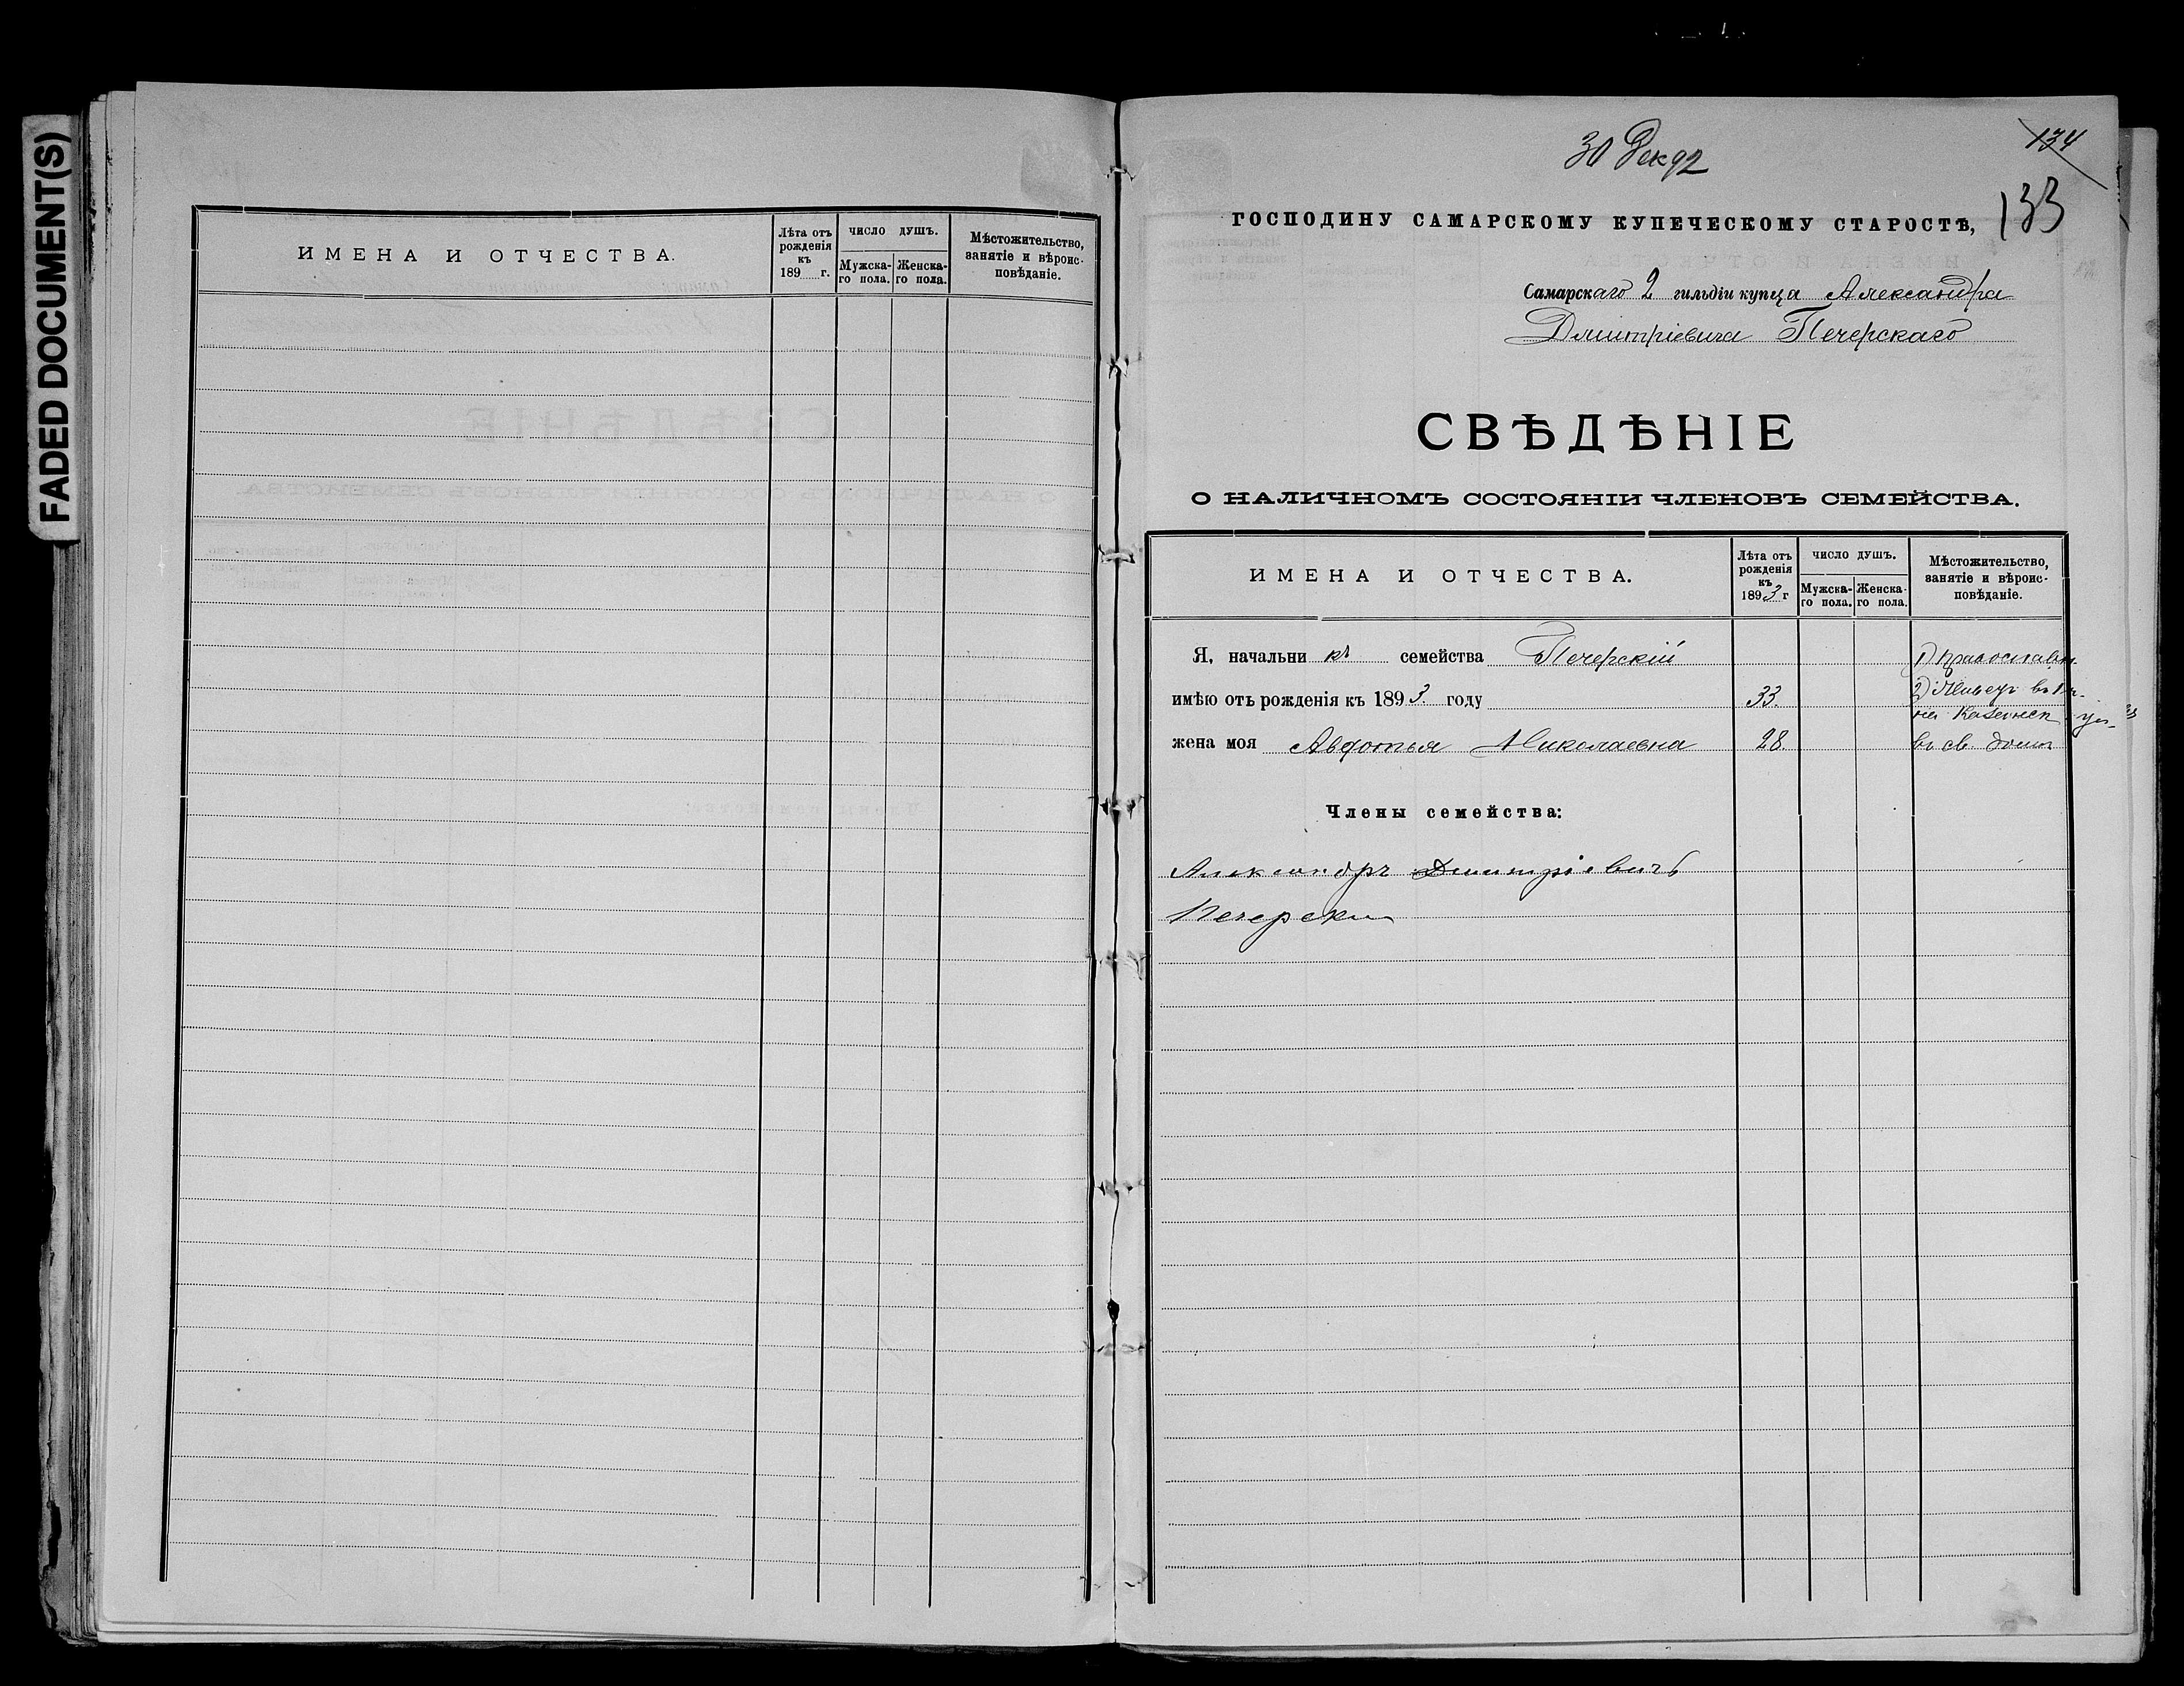 FADED DOCUMENT(S)
ИМЕНА И ОТЧЕСТВА.
Лѣта отъ рожденія къ 189 г.
ЧИСЛО ДУШЪ.
Мужска-го пола.
Женска-го пола.
Мѣстожительство, занятіе и вѣроис-повѣданіе.
30 Дек 92
134
133
ГОСПОДИНУ САМАРСКОМУ КУПЕЧЕСКОМУ СТАРОСТѢ,
Самарскаго 2 гильдіи купца Александра
Дмитріевича Печерскаго
СВѢДѢНІЕ
О НАЛИЧНОМЪ СОСТОЯНІИ ЧЛЕНОВЪ СЕМЕЙСТВА.
ИМЕНА И ОТЧЕСТВА.
Лѣта отъ рожденія къ 1893 г
ЧИСЛО ДУШЪ.
Мужска-го пола.
Женска-го пола.
Мѣстожительство, занятіе и вѣроис-повѣданіе.
Я, начальникъ семейства Печерскій 1) православн.
имѣю отъ рожденія къ 1893. году 33. 2) Живетъ въ
на Казанск. ул.
жена моя Авдотья Николаевна 28. въ св. домѣ
Члены семейства:
Александръ Дмитріевичъ
Печерски